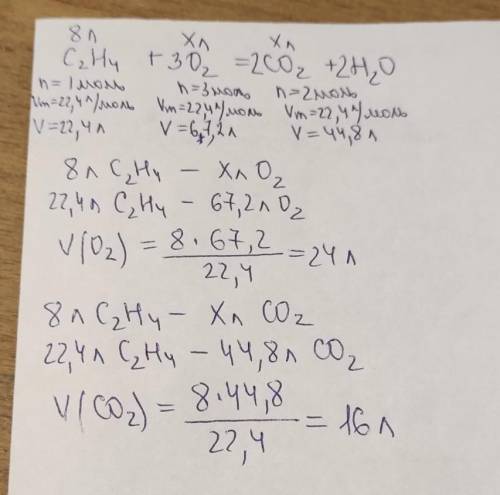 8л хл хл
C₂H₄ + 3O₂ = 2CO₂ + 2H₂O
n = 1 моль n = 3 моль n = 2 моль
Vm = 22,4 л/моль Vm = 22,4 л/моль Vm = 22,4 л/моль
V = 22,4 л V = 67,2 л V = 44,8 л
8л C₂H₄ – хл O₂
22,4л C₂H₄ – 67,2л O₂
V(O₂) = 8 · 67,2 / 22,4 = 24 л
8л C₂H₄ – хл CO₂
22,4л C₂H₄ – 44,8л CO₂
V(CO₂) = 8 · 44,8 / 22,4 = 16 л